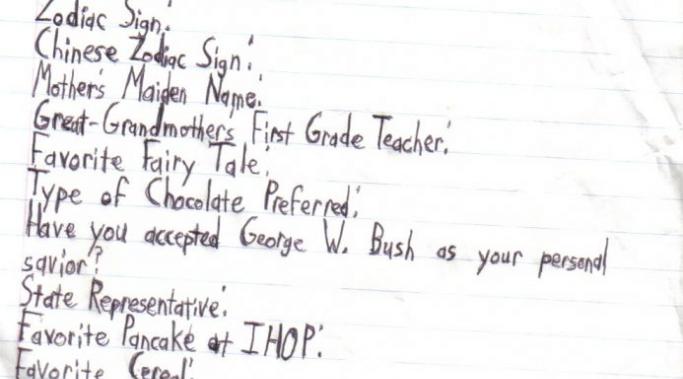 Zodiac Sign:
Chinese Zodiac Sign:
Mother's Maiden Name:
Great-Grandmothers First Grade Teacher:
Favorite Fairy Tale:
Type of Chocolate Preferred:
Have you accepted George W. Bush as your personal
savior?
State Representative:
Favorite Pancake at IHOP:
Favorite Cereal: